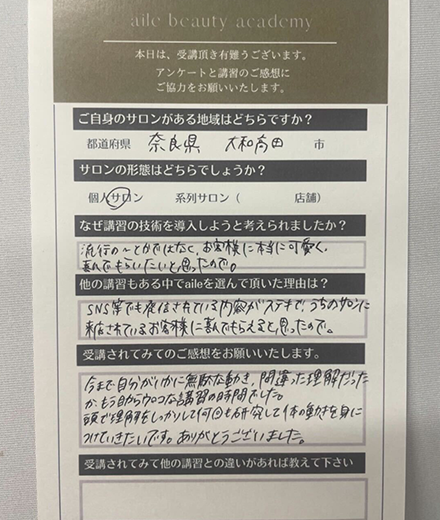 aile beauty academy
本日は、受講頂き有難うございます。
アンケートと講習のご感想に
ご協力をお願いいたします。
ご自身のサロンがある地域はどちらですか？
都道府県 奈良県 大和高田 市
サロンの形態はどちらでしょうか？
個人サロン 系列サロン（ 店舗）
なぜ講習の技術を導入しようと考えられましたか？
流行の〜とかではなく、お客様に本当に可愛く、
喜んでもらいたいと思ったので。
他の講習もある中でaileを選んで頂いた理由は？
SNS等でも発信されている内容がステキで、うちのサロンに
来店されているお客様に喜んでもらえると思ったので。
受講されてみてのご感想をお願いいたします。
今まで自分がいかに無駄な動き、間違った理解だった
か、もう目からウロコな講習の時間でした。
頭で理解をしっかりして何回も研究して体の動きを身に
つけていきたいです。ありがとうございました。
受講されてみて他の講習との違いがあれば教えて下さい